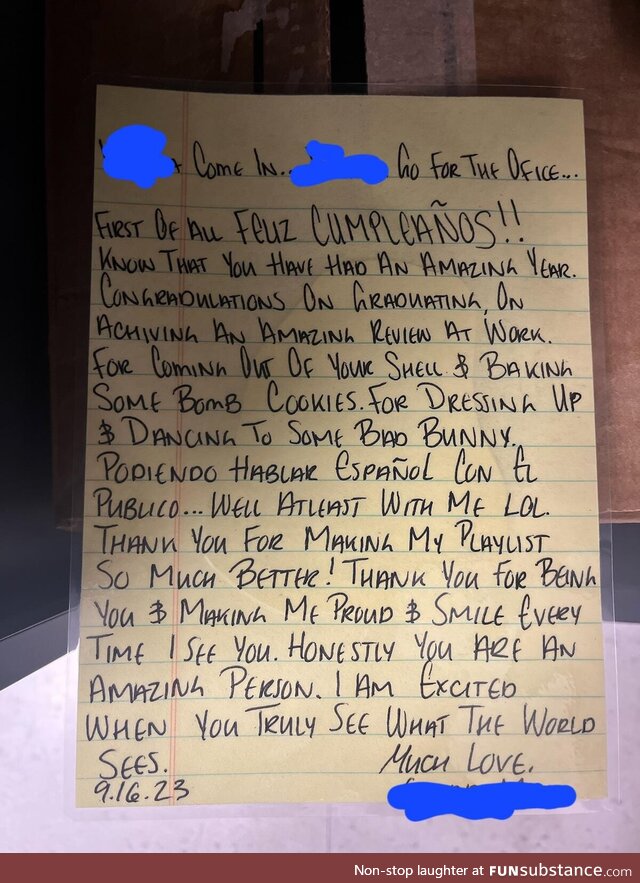 Come In.. Go For The Ofice...
First Of All Feliz Cumpleaños!!
Know That You Have Had An Amazing Year.
Congradulations On Graduating, On
Achiving An Amazing Review At Work.
For Coming Out Of Your Shell & Baking
Some Bomb Cookies. For Dressing Up
& Dancing To Some Bad Bunny.
Podiendo Hablar Español Con El
Publico... Well Atleast With Me Lol.
Thank You For Making My Playlist
So Much Better! Thank You For Being
You & Making Me Proud & Smile Every
Time I See You. Honestly You Are An
Amazing Person. I Am Excited
When You Truly See What The World
Sees. Much Love.
9.16.23
Non-stop laughter at FUNsubstance.com